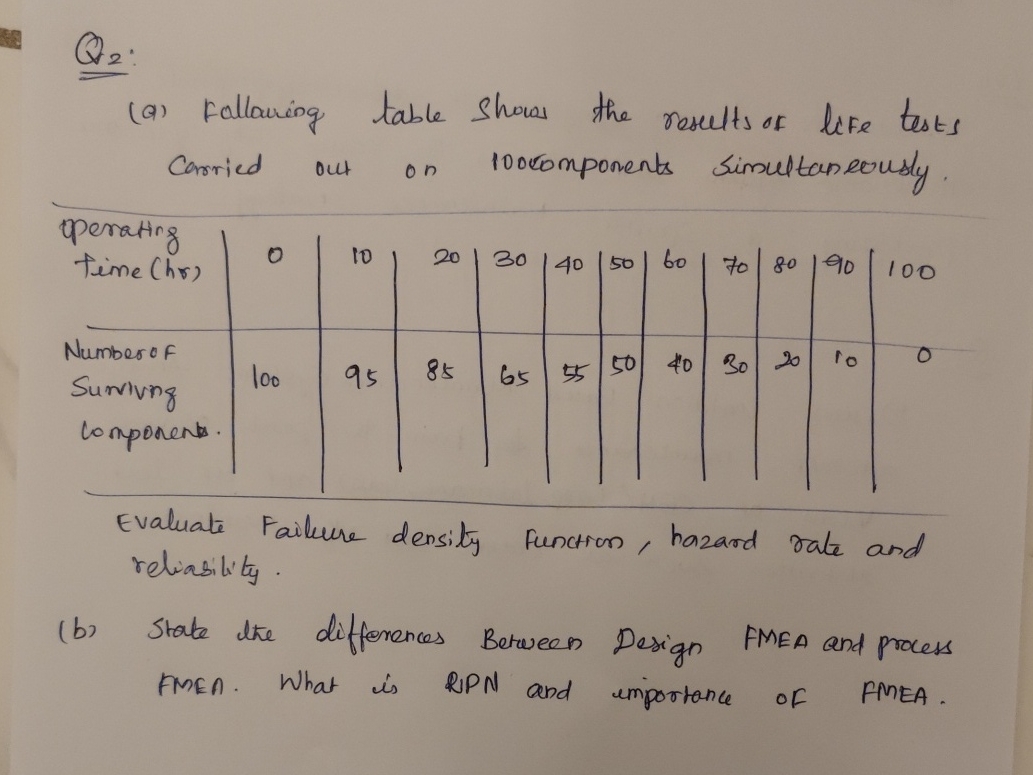 Q2:
(a) Following table shows the results of life tests
Carried out on 100components simultaneously.
Operating
Time (hr) 0 10 20 30 40 50 60 70 80 90 100
Number of
Surviving
Components. 100 95 85 65 55 50 40 30 20 10 0
Evaluate Failure density Function, hazard rate and
reliability.
(b) State the differences Between Design FMEA and process
FMEA. What is RPN and importance of FMEA.